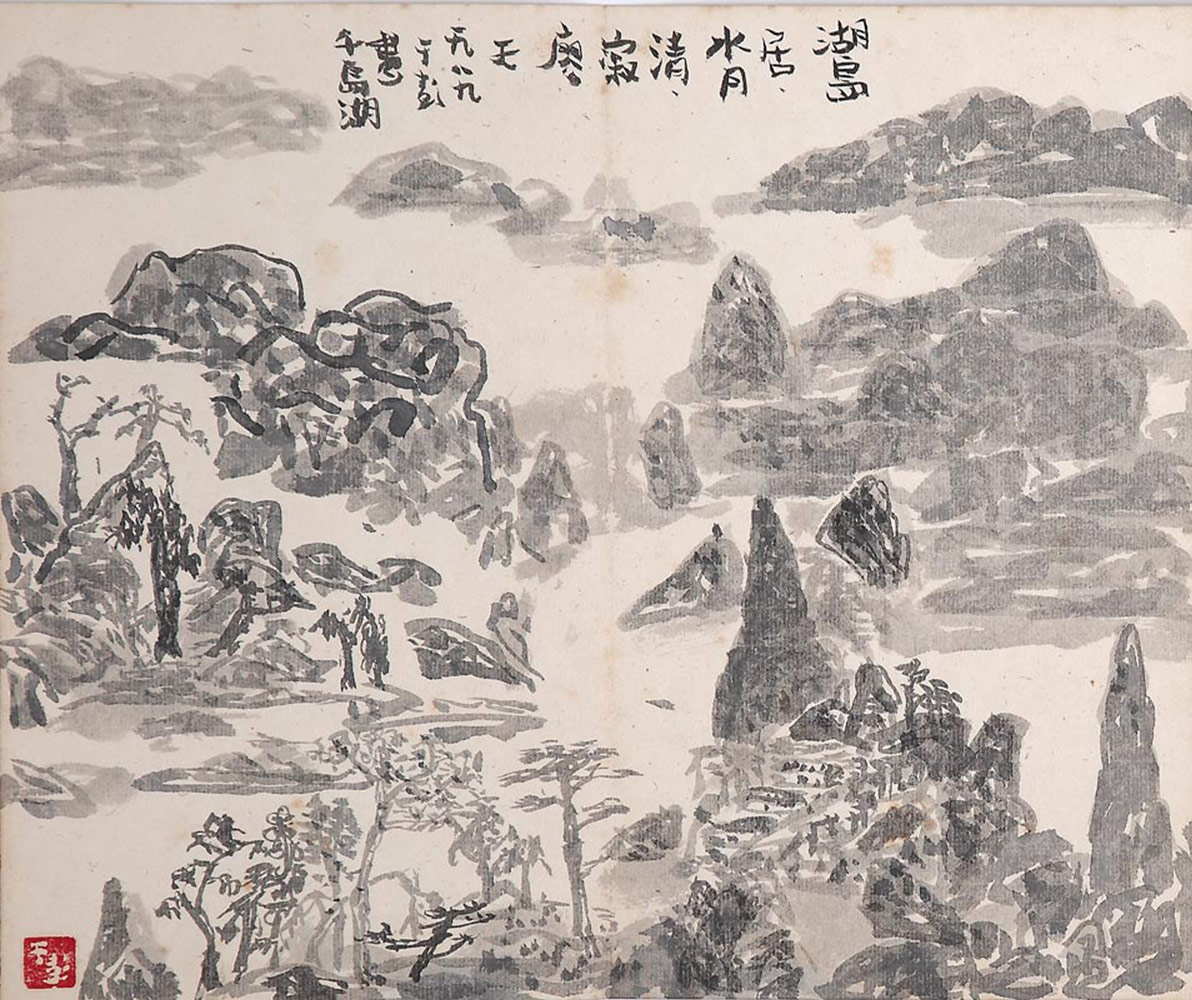 湖島
居、
水月
清、
寂
寥
天
一九八九
于彭
畫
千島湖
于彭